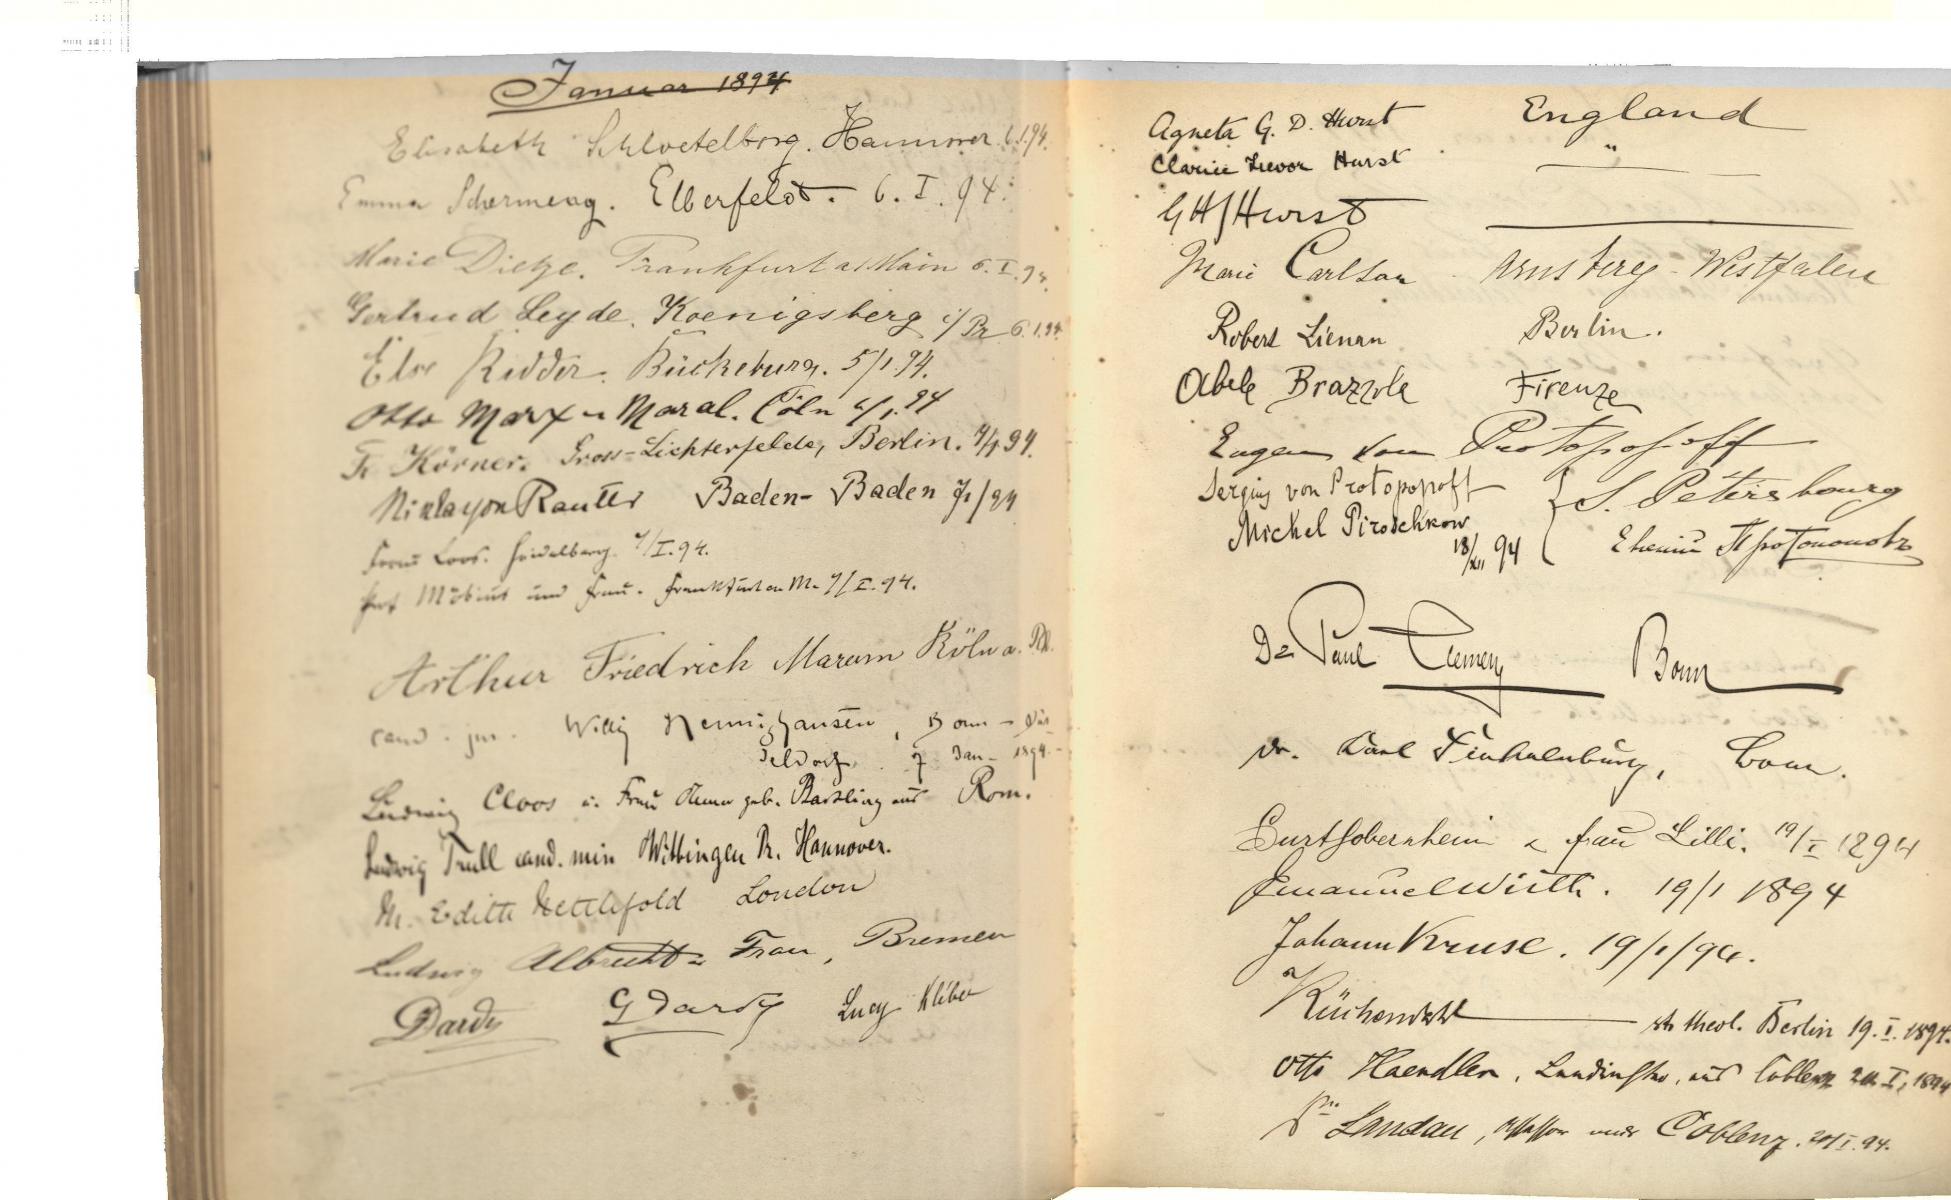 Januar 1894
Elisabeth Hannover 6.1.94.
Emma Elberfeld. 6. I. 94.
Marie Dietze. Frankfurt a/Main 6. I. 94.
Gertrud Leyde. Koenigsberg i/Pr 6.1.94.
Else Ridder. Bückeburg. 5/1.94.
Otto Marx Cöln 6/1.94
Fr Körner. Gross-Lichterfelde, Berlin. 94.
Rautter Baden-Baden /94
Frau Loos. Heidelberg. 7/I.94.
Prof Möbius und Frau. Frankfurt a M. 7/I.94.
Arthur Friedrich Maxum Köln a. Rh.
cand. jur. Willy Bonn - Düs
seldorf. 7 Jan. 1894.
Ludwig Cloos u. Frau geb. Bartling aus Rom.
Ludwig Trull cand. min Wittingen Pr. Hannover.
M. Edith Nettlefold London
Ludwig Albrecht u Frau, Bremen
Dardy G Dardy Lucy
Agneta G. D. Hurst England
Clarice Trevor Hurst "
G H Hurst
Marie Carlson Arnsberg - Westfalen
Robert Lienau Berlin.
Abele Firenze
Eugen von Protopopoff
Sergius von Protopopoff S. Pétersbourg
Michel Piroschkow
18/XII 94
Dr Paul Clemen Bonn
Dr. Karl Finkelnburg, Bonn.
Curt Sobernheim u frau Lilli. 19/I 1894
Emanuel Wirth. 19/1 1894
Johann Kruse. 19/1/94.
theol. Berlin 19. I. 1894.
Otto Haendler, aus Coblenz I, 1894
Landau, Assessor aus Coblenz. 20/I.94.